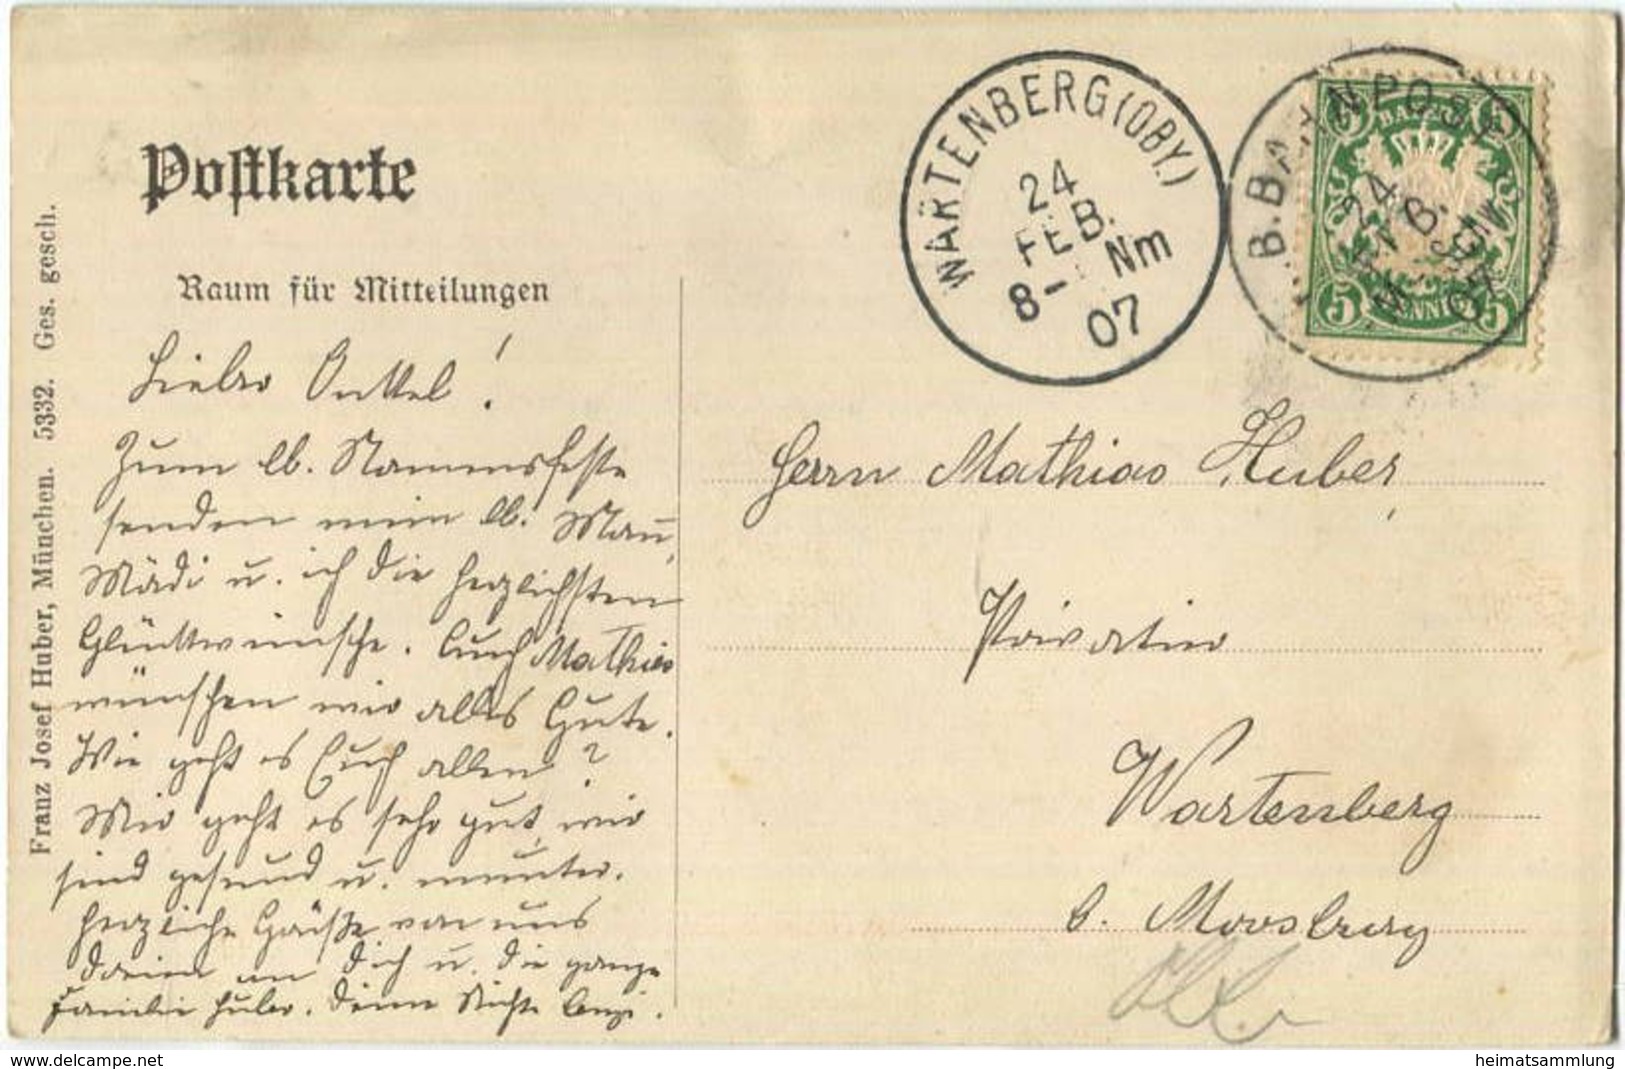 Postkarte
Raum für Mitteilungen
Franz Josef Huber, München. 5332. Ges. gesch.
Lieber Onkel!
Zum lb. Namensfeste
senden mein lb. Mann,
Mädi u. ich die herzlichsten
Glückwünsche. Auch Mathias
wünschen wir alles Gute.
Wie geht es Euch allen?
Mir geht es sehr gut, wir
sind gesund u. munter.
Herzliche Grüße von uns
dreien an Dich u. die ganze
Familie Huber. Deine Nichte Cenzi.
WARTENBERG (OBY.)
24
FEB.
8- Nm
07
B. BAHNPOST
24
07
BAYERN
5 PFENNIG 5
Herrn Mathias Huber,
Privatier
Wartenberg
b. Moosburg
www.delcampe.net
heimatsammlung